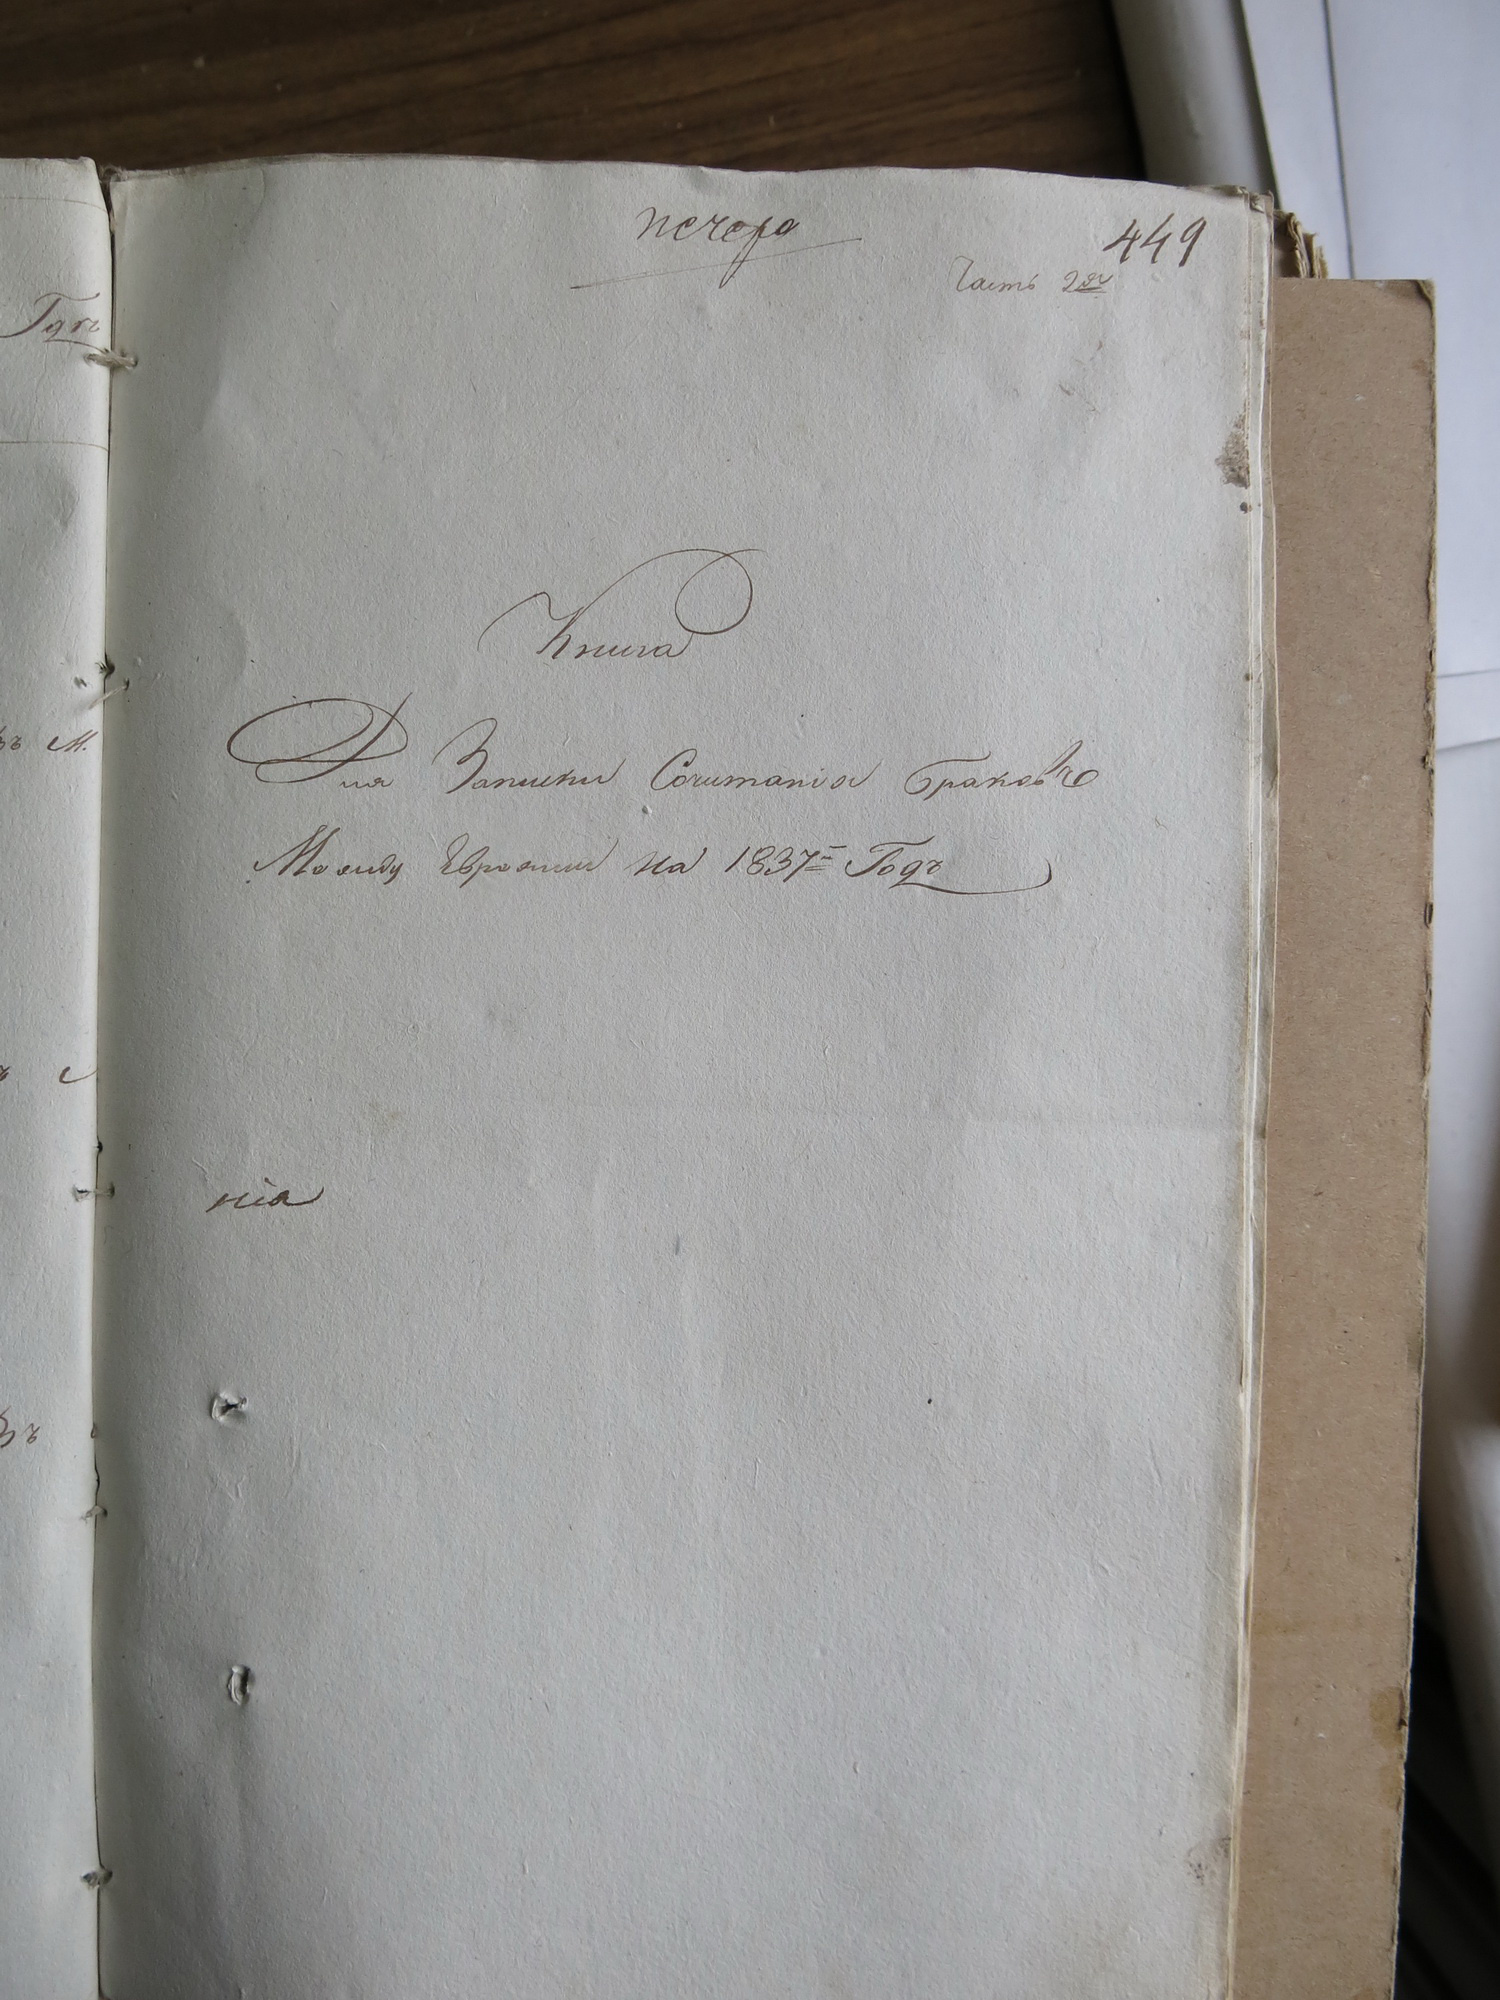 печера
449
Часть 2ая
Книга
Для Записки Сочитанія Браковъ
Между Евреями на 1837й Годъ
нія
Годъ
М.